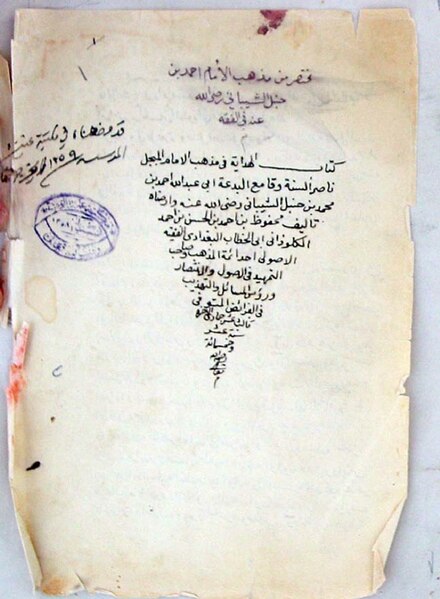 مختصر من مذهب الأمام احمد بن
حنبل الشيباني رضي الله
عنه في الفقه
كتاب الهداية في مذهب الامام المبجل
ناصر السنة وقامع البدعة ابي عبدالله احمد بن
محمد بن حنبل الشيباني رضي الله عنه وارضاه
تاليف محفوظ بن احمد بن الحسن بن احمد
الكلوذاني ابي الخطاب البغدادي الفقيه
الاصولي احد ائمة المذهب وصاحب
التمهيد في الاصول والانتصار
ورؤس المسائل والتهذيب
في الفرائض المتوفى
سنة عشر
وخمسمائة
رحمه الله
تعالى
م
المدرسه ١٣٥٩